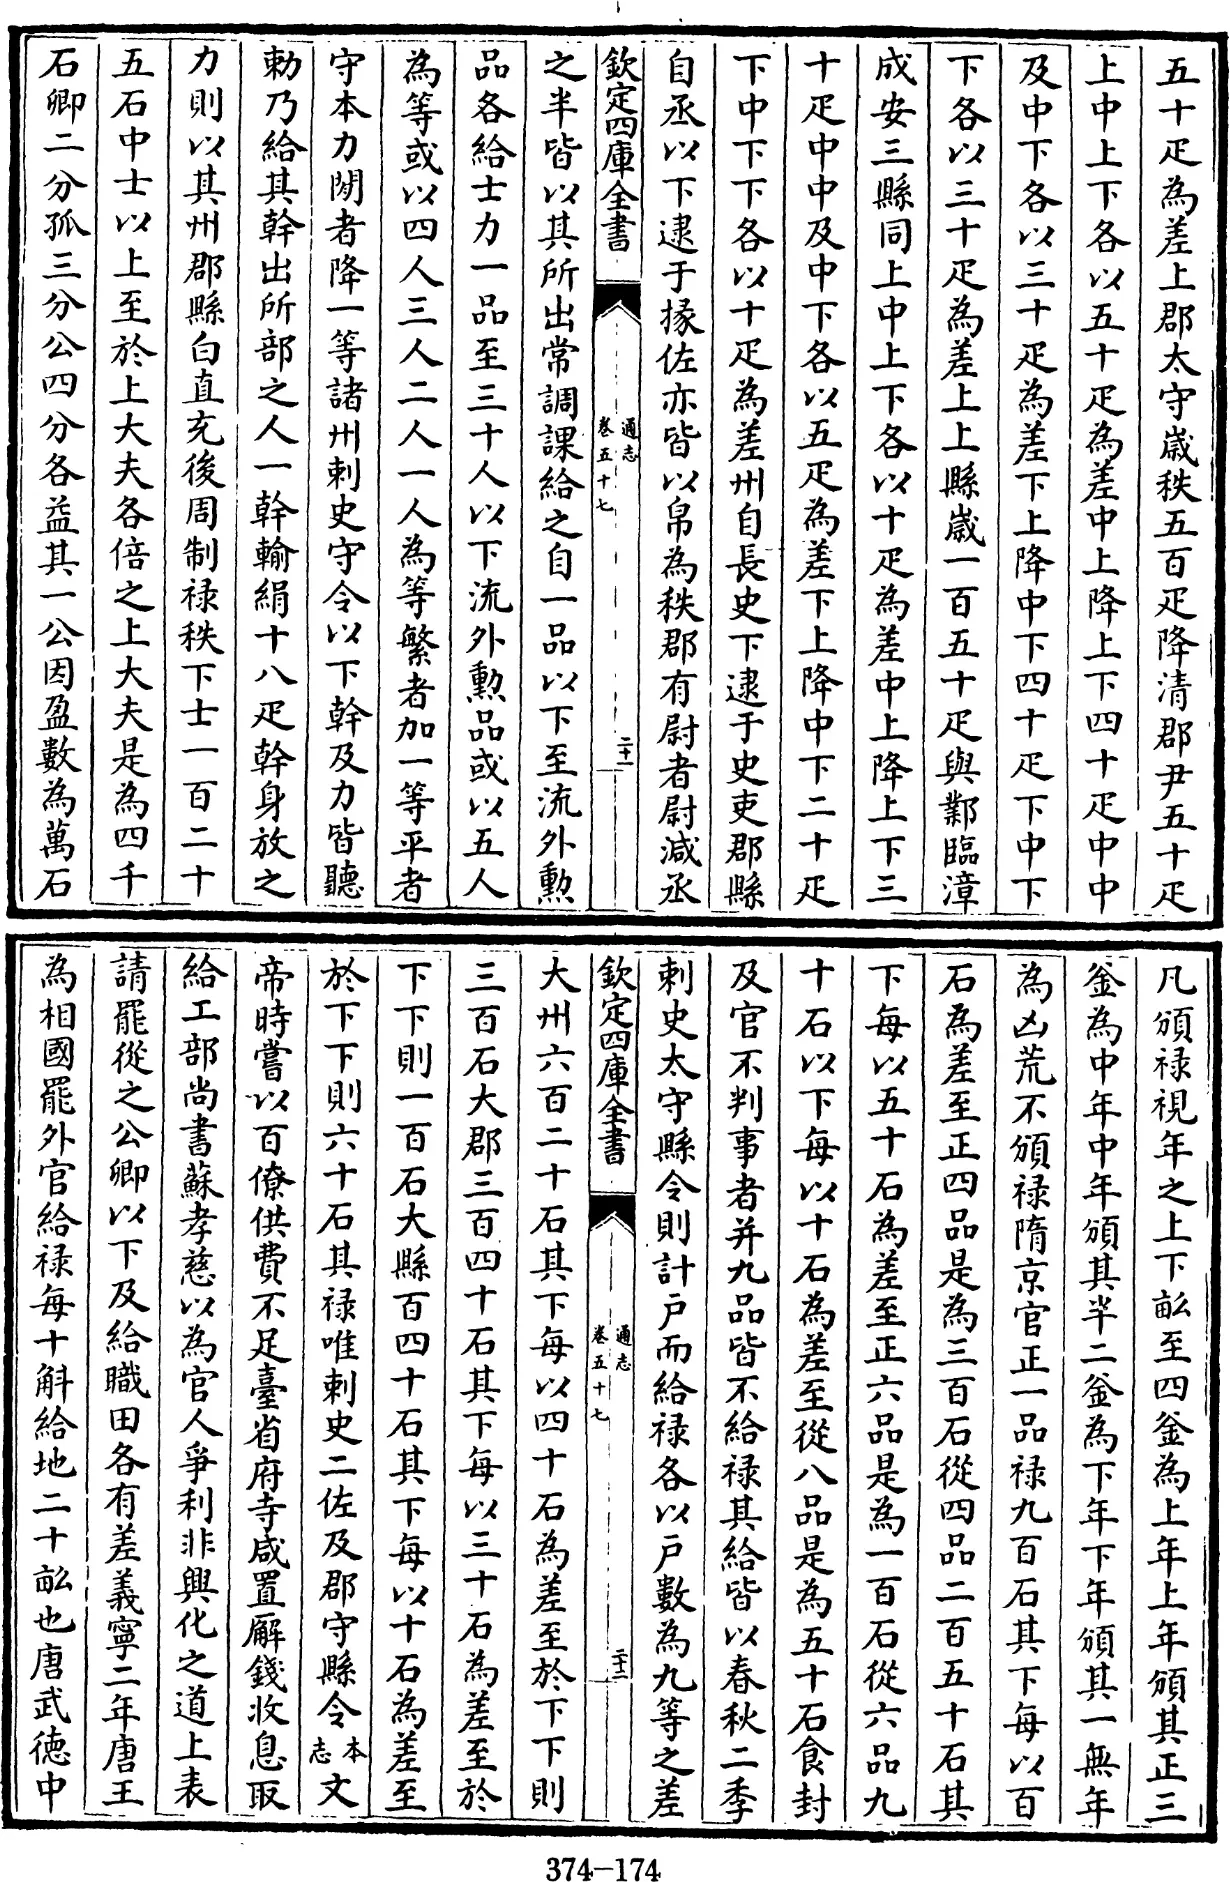 五十疋為差上郡太守歳秩五百疋降清郡尹五十疋
上中上下各以五十疋為差中上降上下四十疋中中
及中下各以三十疋為差下上降中下四十疋下中下
下各以三十疋為差上上縣歳一百五十疋與鄴臨漳
成安三縣同上中上下各以十疋為差中上降上下三
十疋中中及中下各以五疋為差下上降中下二十疋
下中下下各以十疋為差州自長史下逮于史吏郡縣
自丞以下逮于掾佐亦皆以帛為秩郡有尉者尉減丞
欽定四庫全書
通志
卷五十七
二十一
之半皆以其所出常調課給之自一品以下至流外勲
品各給士力一品至三十人以下流外勲品或以五人
為等或以四人三人二人一人為等繁者加一等平者
守本力閒者降一等諸州刺史守令以下幹及力皆聽
勅乃給其幹出所部之人一幹輸絹十八疋幹身放之
力則以其州郡縣白直充後周制禄秩下士一百二十
五石中士以上至於上大夫各倍之上大夫是為四千
石卿二分孤三分公四分各益其一公因盈數為萬石
凡頒禄視年之上下畝至四釜為上年上年頒其正三
釜為中年中年頒其半二釜為下年下年頒其一無年
為凶荒不頒禄隋京官正一品禄九百石其下每以百
石為差至正四品是為三百石從四品二百五十石其
下每以五十石為差至正六品是為一百石從六品九
十石以下每以十石為差至從八品是為五十石食封
及官不判事者并九品皆不給禄其給皆以春秋二季
刺史太守縣令則計户而給禄各以户數為九等之差
欽定四庫全書
通志
卷五十七
二十二
大州六百二十石其下每以四十石為差至於下下則
三百石大郡三百四十石其下每以三十石為差至於
下下則一百石大縣百四十石其下每以十石為差至
於下下則六十石其禄唯刺史二佐及郡守縣令本志文
帝時嘗以百僚供費不足臺省府寺咸置廨錢收息取
給工部尚書蘇孝慈以為官人爭利非興化之道上表
請罷從之公卿以下及給職田各有差義寧二年唐王
為相國罷外官給禄每十斛給地二十畝也唐武德中
374-174